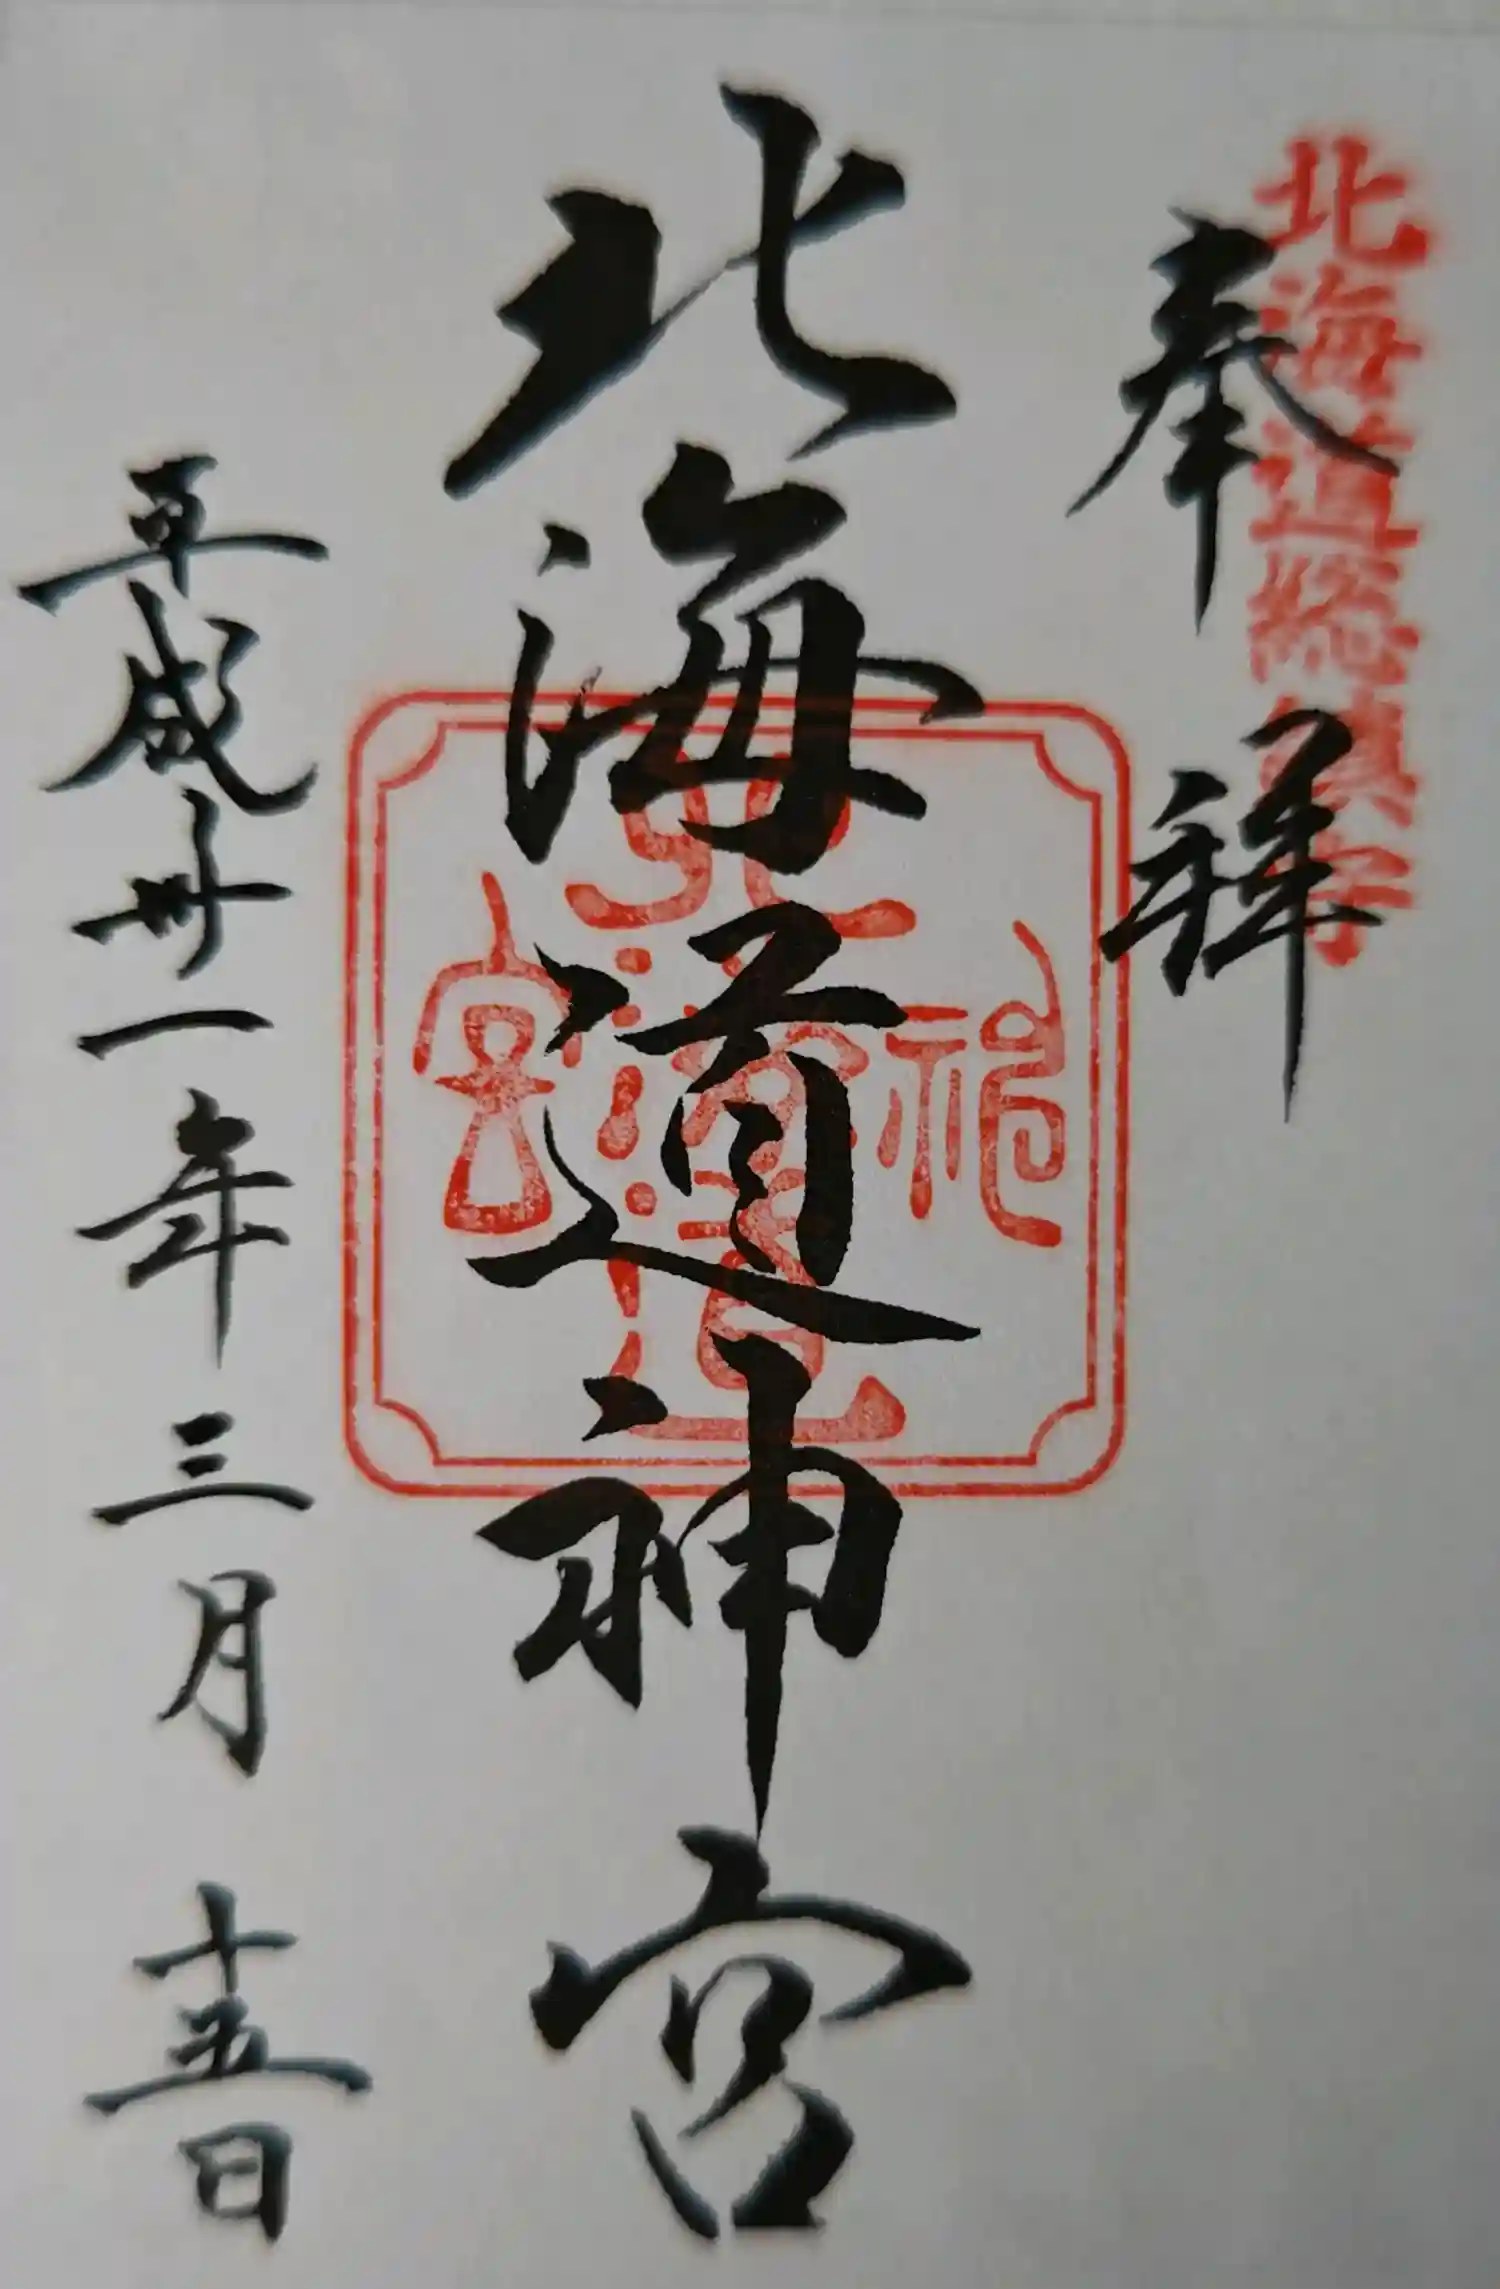 北海道総鎮守
奉拝
北海道神宮
北海道神宮
平成卅一年三月十五日